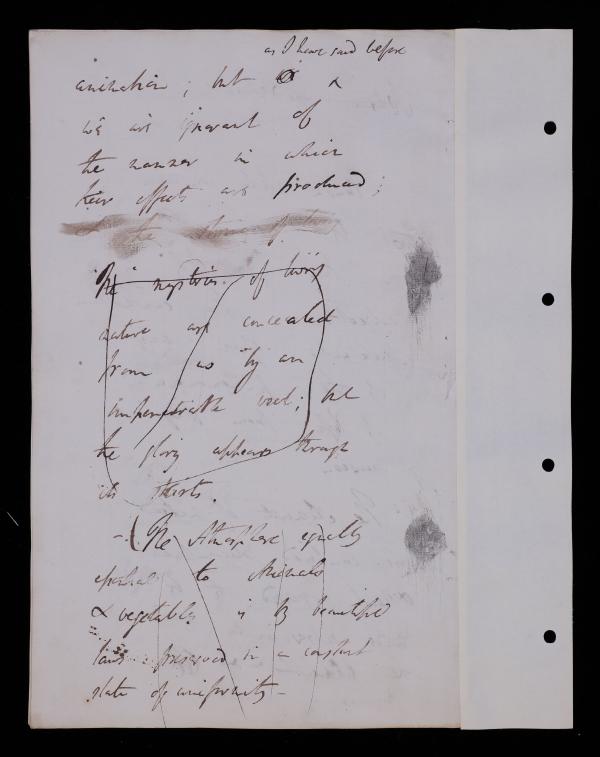 as I have said before
animation; but
we are ignorant of
the manner in which
their effects are produced;
the
The mysteries of living
nature are concealed
from us by an
impenetrable veil; but
the glory appears through
its skirts.
-(The Atmosphere equally
essential to Animals
& vegetables is by beautiful
laws preserved in a constant
state of uniformity -